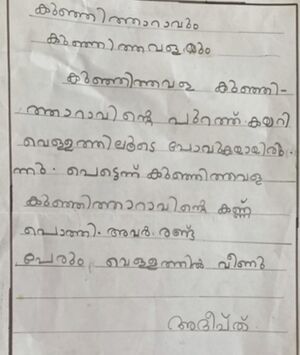 കുഞ്ഞിത്താറാവും
കുഞ്ഞിത്തവളയും
കുഞ്ഞിത്തവള കുഞ്ഞി-
ത്താറാവിന്റെ പുറത്ത് കയറി
വെള്ളത്തിലൂടെ പോവുകയായിരു.
ന്നു. പെട്ടെന്ന് കുഞ്ഞിത്തവള
കുഞ്ഞിത്താറാവിന്റെ കണ്ണ്
പൊത്തി. അവർ രണ്ടു
പേരും വെള്ളത്തിൽ വീണു
അദീപ്ത്.